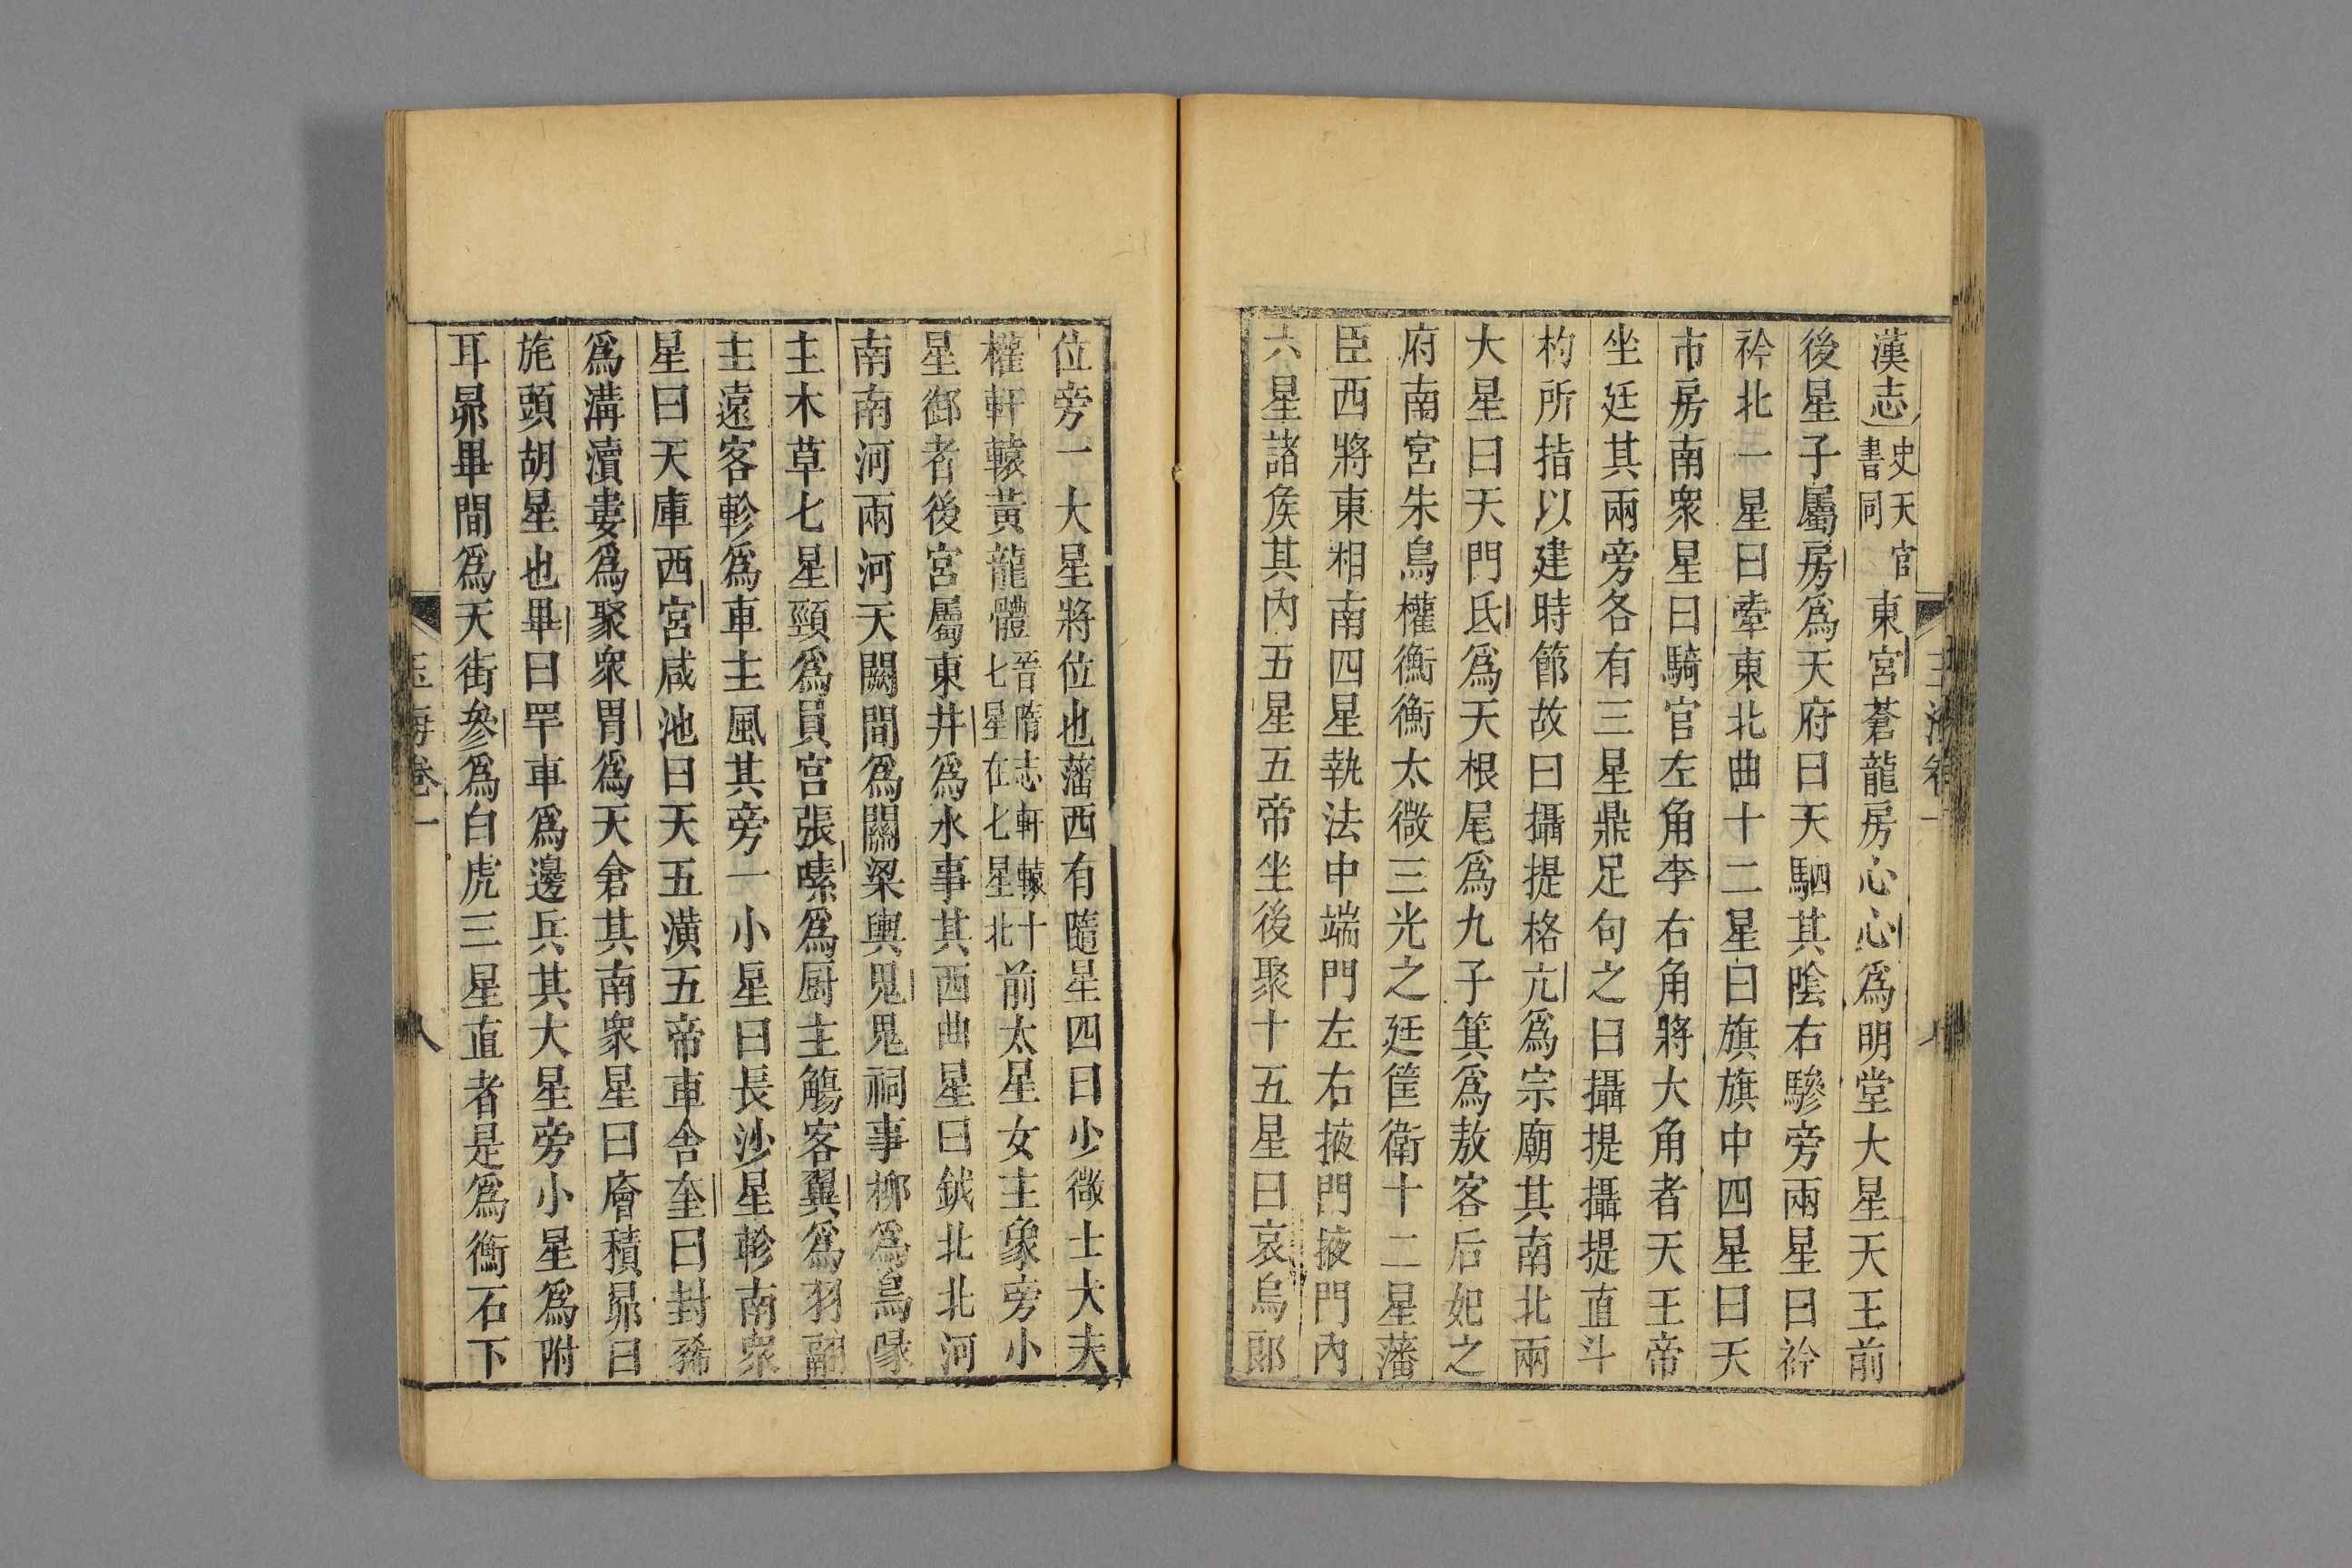 漢志史天官書同東宮蒼龍房心心爲明堂大星天王前
後星子屬房爲天府曰天駟其陰右驂旁兩星曰衿
衿北一星曰舝東北曲十二星曰旗旗中四星曰天
市房南衆星曰騎官左角李右角將大角者天王帝
坐廷其兩旁各有三星鼎足句之曰攝提攝提直斗
杓所指以建時節故曰攝提格亢爲宗廟其南北兩
大星曰天門氐爲天根尾爲九子箕爲敖客后妃之
府南宮朱鳥權衡衡太微三光之廷筐衛十二星藩
臣西將東相南四星執法中端門左右掖門掖門內
六星諸侯其內五星五帝坐後聚十五星曰哀烏郎
位旁一大星將位也藩西有隨星四曰少微士大夫
權軒轅黃龍體晉隋志軒轅十七星在七星北前太星女主象旁小
星御者後宮屬東井爲水事其西曲星曰鉞北北河
南南河兩河天闕間爲關梁輿鬼鬼祠事柳爲鳥喙
主木草七星頸爲員宮張嗉爲厨主觴客翼爲羽翮
主遠客軫爲車主風其旁一小星曰長沙星軫南衆
星曰天庫西宮咸池曰天五潢五帝車舍奎曰封豨
爲溝瀆婁爲聚衆胃爲天倉其南衆星曰廥積昴曰
旄頭胡星也畢曰罕車爲邊兵其大星旁小星爲附
耳昴畢間爲天街參爲白虎三星直者是爲衡石下
玉海卷一
八